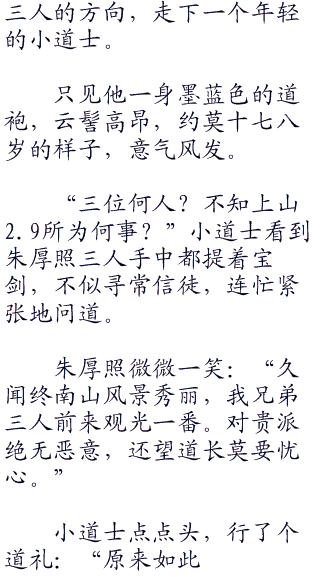 三人的方向，走下一个年轻
的小道士。
只见他一身墨蓝色的道
袍，云髻高昂，约莫十七八
岁的样子，意气风发。
“三位何人？不知上山
2.9所为何事？”小道士看到
朱厚照三人手中都提着宝
剑，不似寻常信徒，连忙紧
张地问道。
朱厚照微微一笑：“久
闻终南山风景秀丽，我兄弟
三人前来观光一番。对贵派
绝无恶意，还望道长莫要忧
心。”
小道士点点头，行了个
道礼：“原来如此